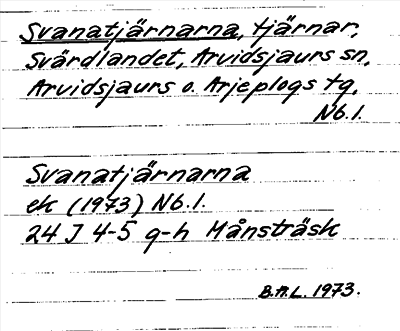 Svanatjärnarna, tjärnar,
Svärdlandet, Arvidsjaurs sn,
Arvidsjaurs o. Arjeplogs tg,
Nb.l.
Svanatjärnarna
ek (1973) Nb.l.
24 J 4-5 g-h Månsträsk
B.A.L. 1973.